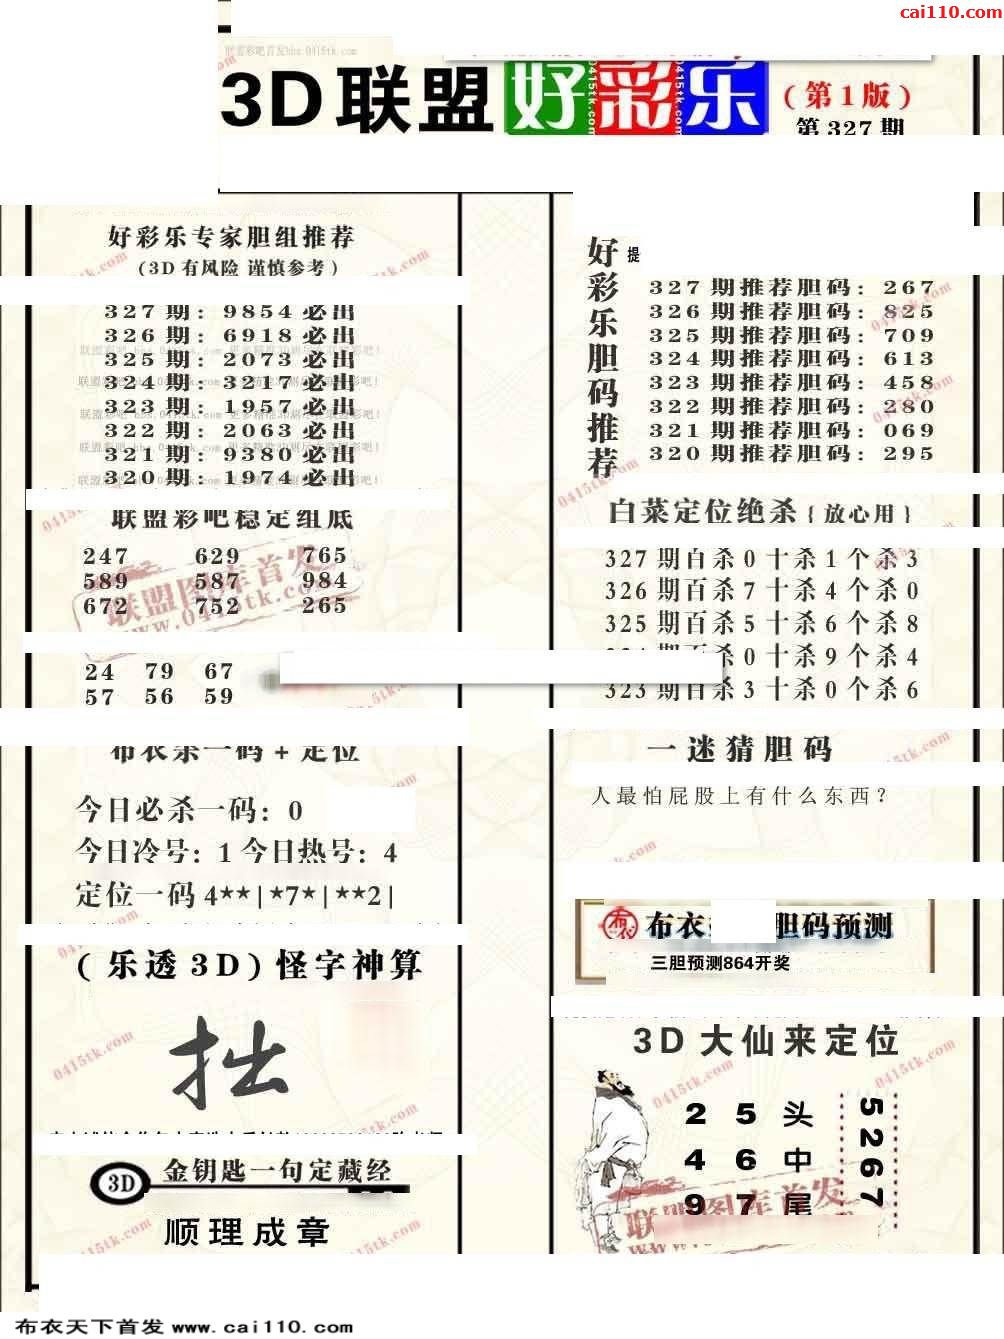 cai110.com
财富彩吧首发bbs.0415tk.com
3D联盟 好彩乐 (第1版)
第327期
好彩乐专家胆组推荐
(3D有风险 谨慎参考)
327期: 9854必出
326期: 6918必出
325期: 2073必出
324期: 3217必出
323期: 1957必出
322期: 2063必出
321期: 9380必出
320期: 1974必出
联盟彩吧稳定组底
247 629 765
589 587 984
672 752 265
24 79 67
57 56 59
布衣杀一码+定位
今日必杀一码: 0
今日冷号: 1 今日热号: 4
定位一码 4**|*7*|**2|
(乐透3D)怪字神算
拙
3D 金钥匙一句定藏经
顺理成章
好彩乐胆码推荐
提
327期推荐胆码: 267
326期推荐胆码: 825
325期推荐胆码: 709
324期推荐胆码: 613
323期推荐胆码: 458
322期推荐胆码: 280
321期推荐胆码: 069
320期推荐胆码: 295
白菜定位绝杀{放心用}
327期百杀0十杀1个杀3
326期百杀7十杀4个杀0
325期百杀5十杀6个杀8
杀0十杀9个杀4
323期百杀3十杀0个杀6
一迷猜胆码
人最怕屁股上有什么东西?
布衣 布衣 胆码预测
三胆预测864开奖
3D大仙来定位
2 5 头
4 6 中
9 7 尾
5267
联盟图库首发
www.0415tk.com
布衣天下首发 www.cai110.com